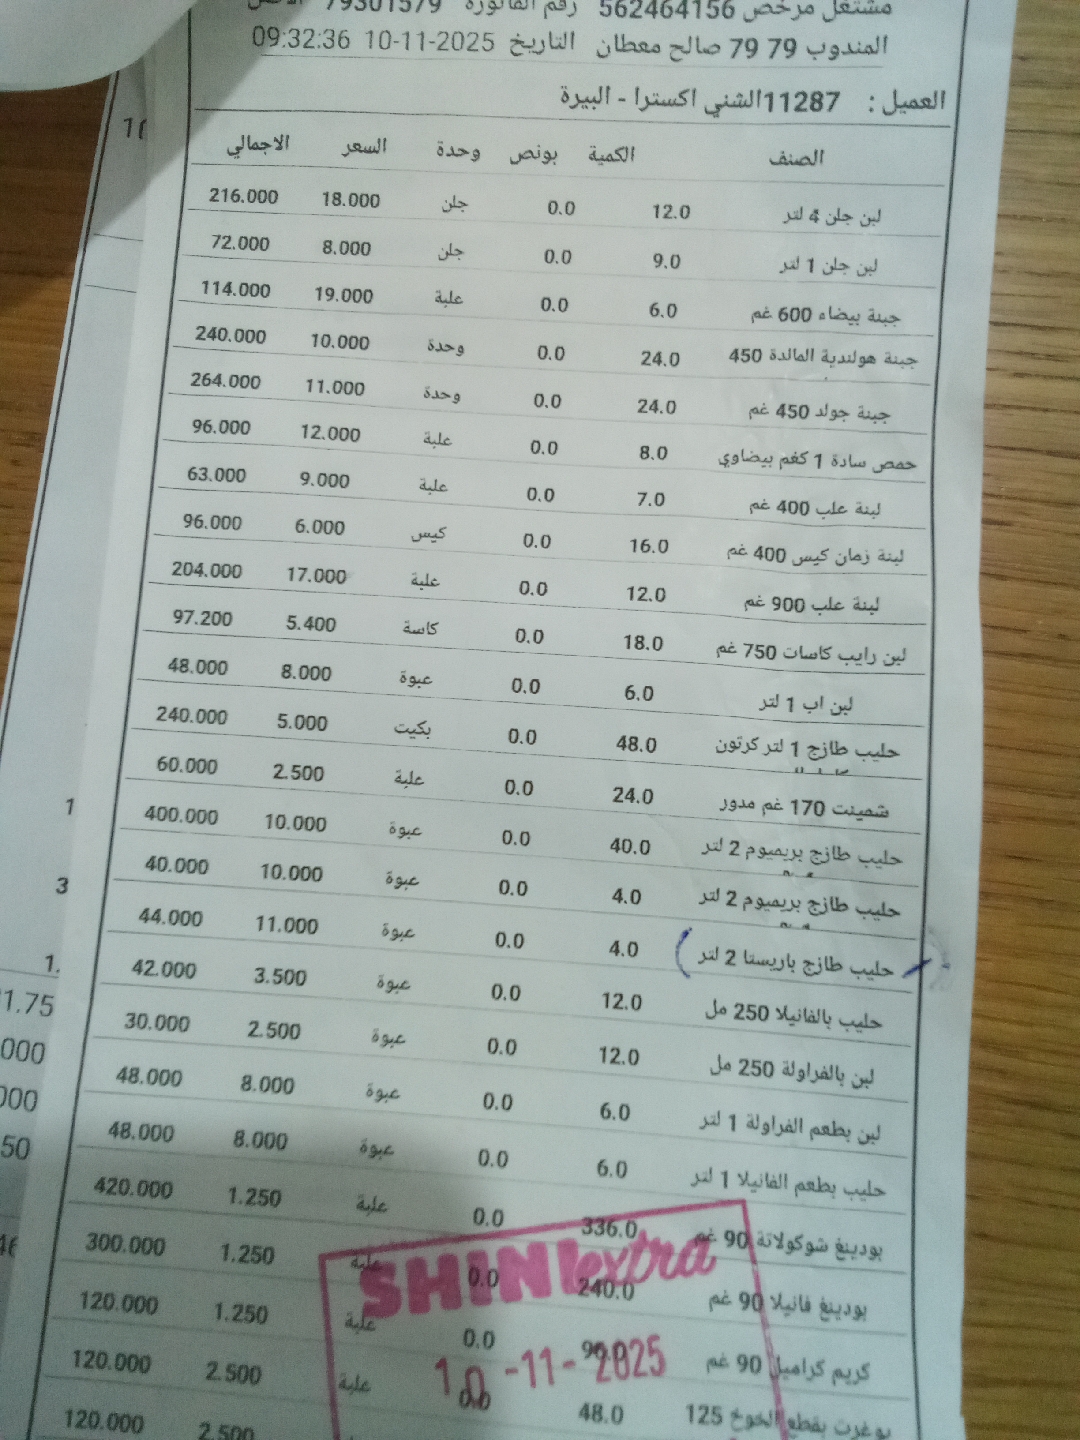 مشتغل مرخص 562464156 رقم الفاتورة 79301579 الاصل
المندوب 79 79 صالح معطان التاريخ 10-11-2025 09:32:36
العميل : 11287الشني اكسترا - البيرة
الصنف الكمية بونص وحدة السعر الاجمالي
لبن جلن 4 لتر 12.0 0.0 جلن 18.000 216.000
لبن جلن 1 لتر 9.0 0.0 جلن 8.000 72.000
جبنة بيضاء 600 غم 6.0 0.0 علبة 19.000 114.000
جبنة هولندية المالدة 450 24.0 0.0 وحدة 10.000 240.000
جبنة جولد 450 غم 24.0 0.0 وحدة 11.000 264.000
حمص سادة 1 كغم بيضاوي 8.0 0.0 علبة 12.000 96.000
لبنة علب 400 غم 7.0 0.0 علبة 9.000 63.000
لبنة زمان كيس 400 غم 16.0 0.0 كيس 6.000 96.000
لبنة علب 900 غم 12.0 0.0 علبة 17.000 204.000
لبن رايب كاسات 750 غم 18.0 0.0 كاسة 5.400 97.200
لبن اب 1 لتر 6.0 0.0 عبوة 8.000 48.000
حليب طازج 1 لتر كرتون 48.0 0.0 بكيت 5.000 240.000
شمينت 170 غم مدور 24.0 0.0 علبة 2.500 60.000
حليب طازج بريميوم 2 لتر 40.0 0.0 عبوة 10.000 400.000
حليب طازج بريميوم 2 لتر 4.0 0.0 عبوة 10.000 40.000
حليب طازج باريستا 2 لتر 4.0 0.0 عبوة 11.000 44.000
حليب بالفانيلا 250 مل 12.0 0.0 عبوة 3.500 42.000
لبن بالفراولة 250 مل 12.0 0.0 عبوة 2.500 30.000
لبن بطعم الفراولة 1 لتر 6.0 0.0 عبوة 8.000 48.000
حليب بطعم الفانيلا 1 لتر 6.0 0.0 عبوة 8.000 48.000
بودينغ شوكولاتة 90 غم 336.0 0.0 علبة 1.250 420.000
بودينغ فانيلا 90 غم 240.0 0.0 علبة 1.250 300.000
كريم كراميل 90 غم 96.0 0.0 علبة 1.250 120.000
يوغرت بقطع الخوخ 125 48.0 0.0 علبة 2.500 120.000
2.500 120.000
SHINI extra
10-11-2025
1
3
1.
1.75
000
000
50